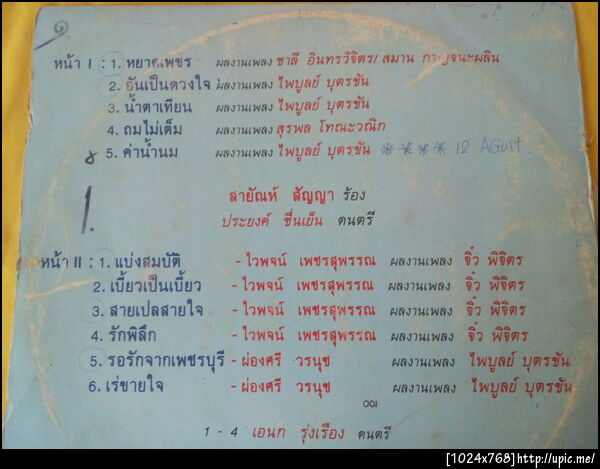 ๑
หน้า I : 1. หยาดเพชร ผลงานเพลง ชาลี อินทรวิจิตร/สมาน กาญจนะผลิน
2. อันเป็นดวงใจ ผลงานเพลง ไพบูลย์ บุตรขัน
3. น้ำตาเทียน ผลงานเพลง ไพบูลย์ บุตรขัน
4. ถมไม่เต็ม ผลงานเพลง สุรพล โทณะวณิก
5. ค่าน้ำนม ผลงานเพลง ไพบูลย์ บุตรขัน **** 12 AGUST.
1.
สายัณห์ สัญญา ร้อง
ประยงค์ ชื่นเย็น ดนตรี
หน้า II : 1. แบ่งสมบัติ - ไวพจน์ เพชรสุพรรณ ผลงานเพลง จิ๋ว พิจิตร
2. เบี้ยวเป็นเบี้ยว - ไวพจน์ เพชรสุพรรณ ผลงานเพลง จิ๋ว พิจิตร
3. สายเปลสายใจ - ไวพจน์ เพชรสุพรรณ ผลงานเพลง จิ๋ว พิจิตร
4. รักพิลึก - ไวพจน์ เพชรสุพรรณ ผลงานเพลง จิ๋ว พิจิตร
5. รอรักจากเพชรบุรี - ผ่องศรี วรนุช ผลงานเพลง ไพบูลย์ บุตรขัน
6. เร่ขายใจ - ผ่องศรี วรนุช ผลงานเพลง ไพบูลย์ บุตรขัน
1 - 4 เอนก รุ่งเรือง ดนตรี
[1024x768]http://upic.me/